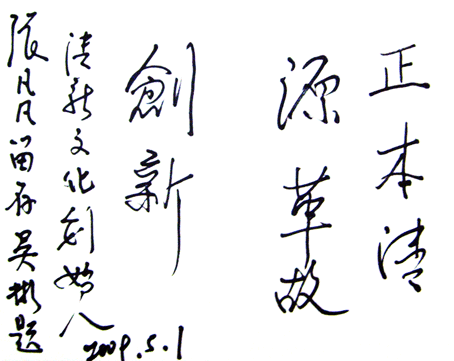 正本清
源革故
創新
清新文化创始人
张凡凡留存吴彬题
2009.5.1